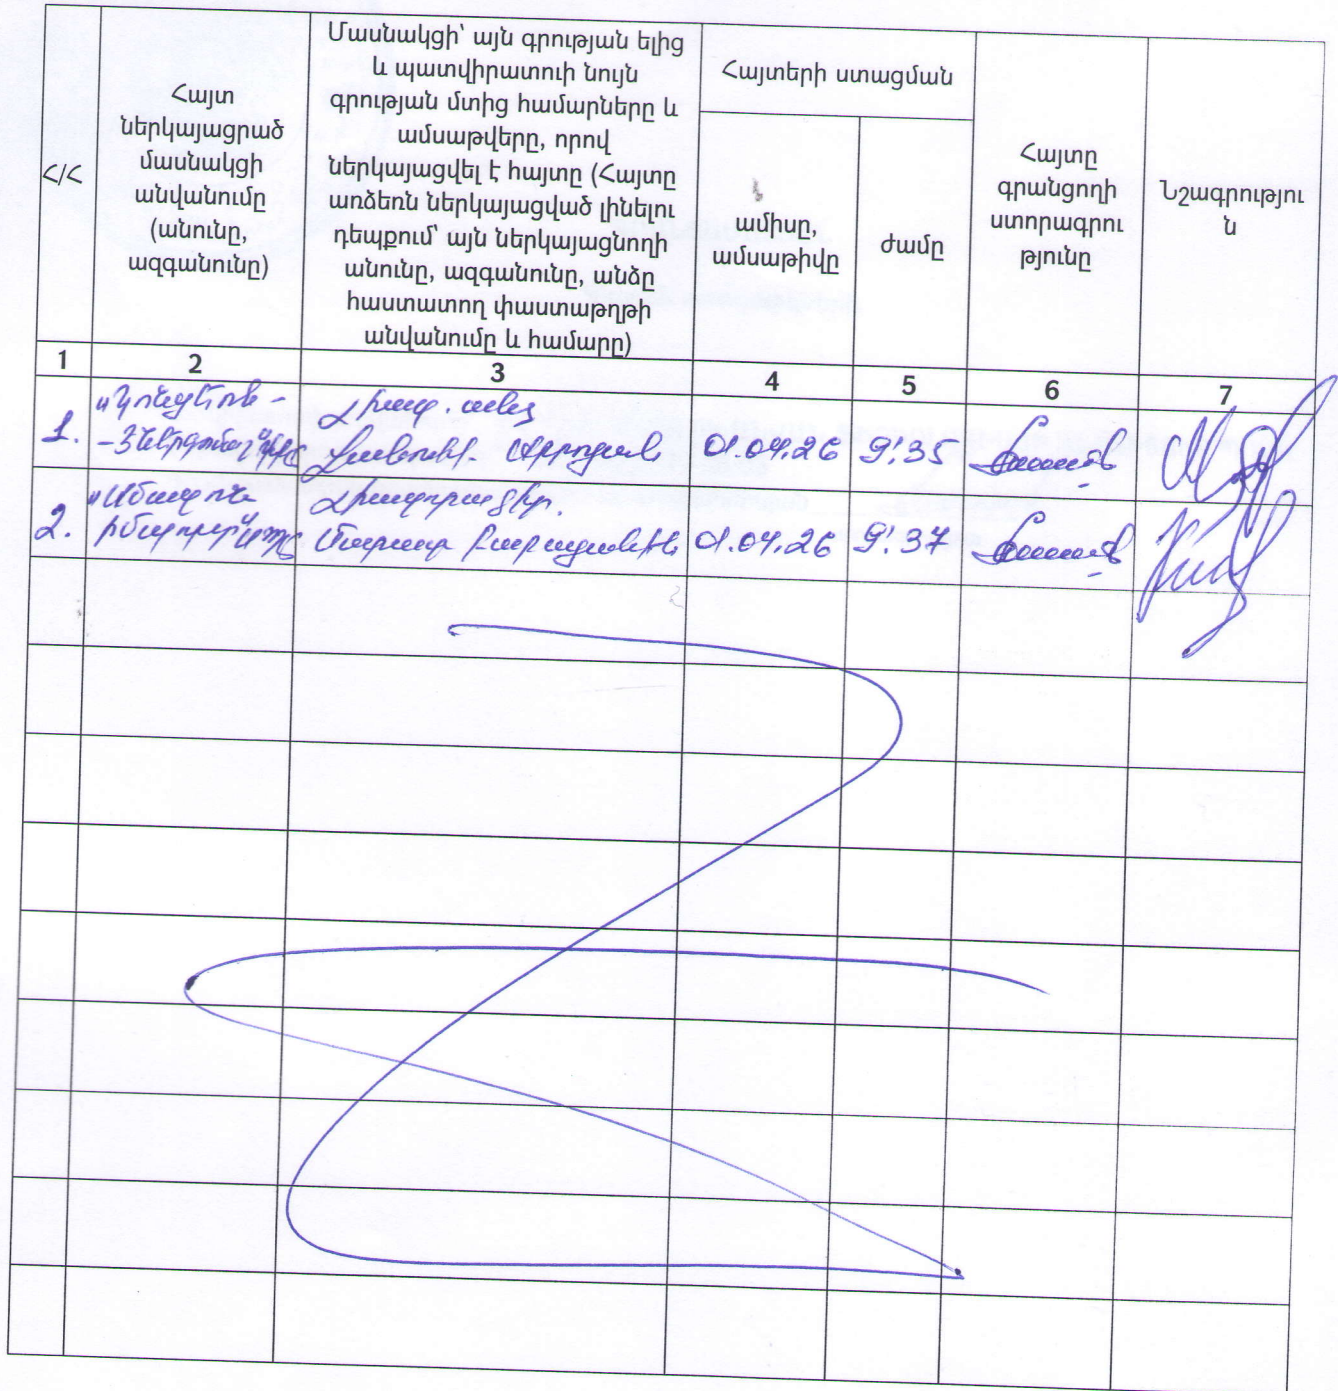 Հ/Հ
Հայտ
ներկայացրած
մասնակցի
անվանումը
(անունը,
ազգանունը)
Մասնակցի՝ այն գրության ելից
և պատվիրատուի նույն
գրության մտից համարները և
ամսաթվերը, որով
ներկայացվել է հայտը (Հայտը
առձեռն ներկայացված լինելու
դեպքում՝ այն ներկայացնողի
անունը, ազգանունը, անձը
հաստատող փաստաթղթի
անվանումը և համարը)
Հայտերի ստացման
ամիսը,
ամսաթիվը
ժամը
Հայտը
գրանցողի
ստորագրու
թյունը
Նշագրությու
ն
1 2 3 4 5 6 7
1.
01.04.26 9:35
2.
01.04.26 9:37